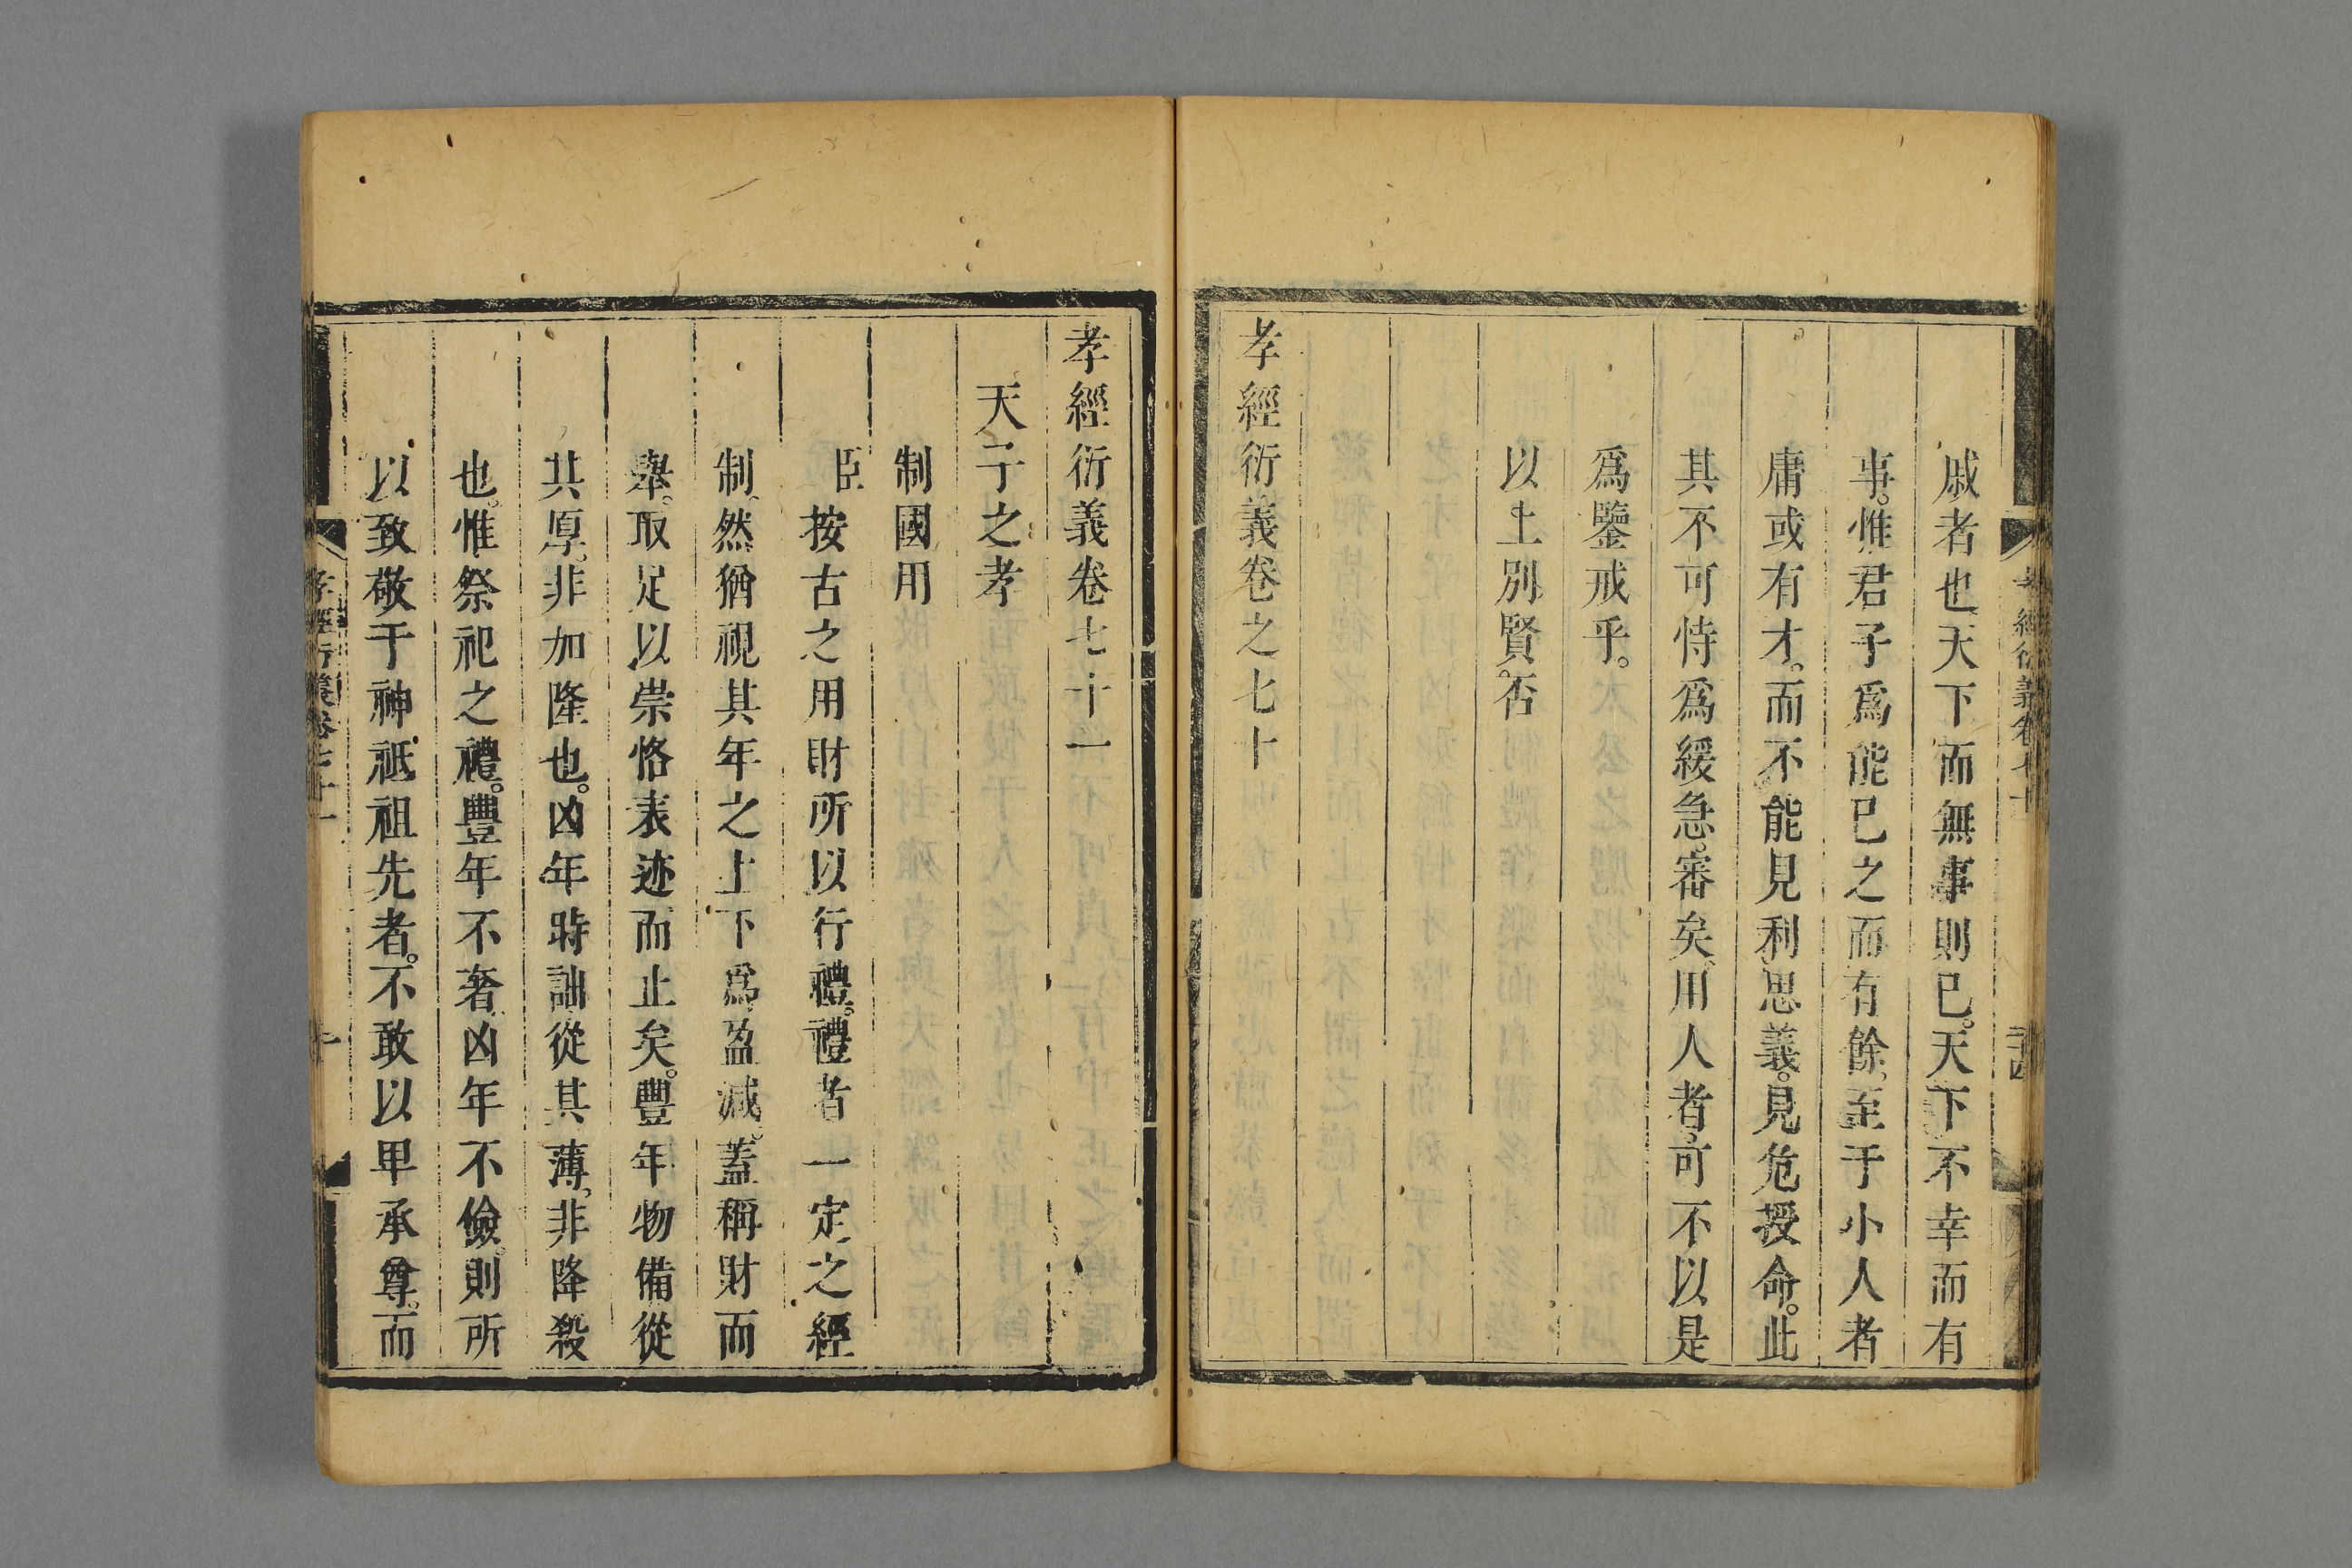 戚者也天下而無事則已。天下不幸而有
事。惟君子爲能已之而有餘。至于小人者
庸或有才。而不能見利思義。見危授命。此
其不可恃爲緩急。審矣。用人者。可不以是
爲鑒戒乎。
以上別賢。否
孝經衍義卷之七十
孝經衍義卷七十一
天子之孝
制國用
臣按古之用財所以行禮。禮者一定之經
制。然猶視其年之上下爲盈減。蓋稱財而
舉。取足以崇恪表迹而止矣。豐年物備從
其厚。非加隆也。凶年時詘從其薄。非降殺
也。惟祭祀之禮。豐年不奢。凶年不儉。則所
以致敬于神祇祖先者。不敢以卑承尊。而
孝經衍義卷七十一